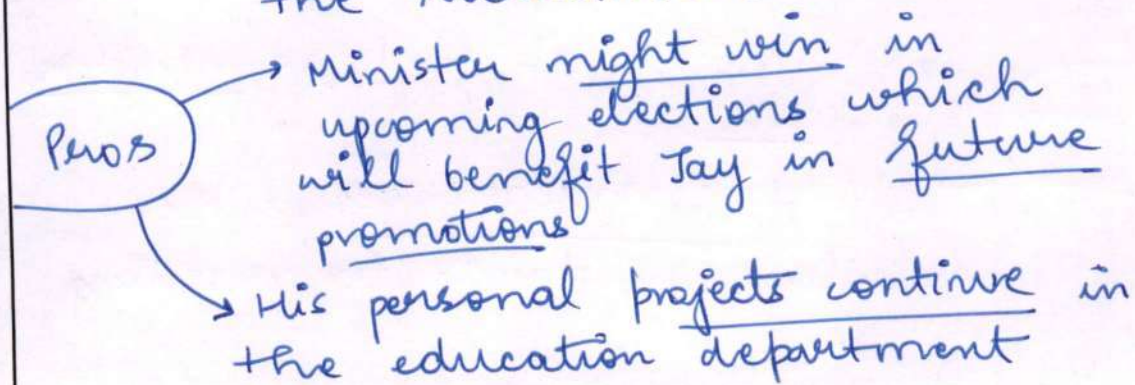 the
Pros
→ Minister might win in
upcoming elections which
will benefit Jay in future
promotions
→ His personal projects continue in
the education department